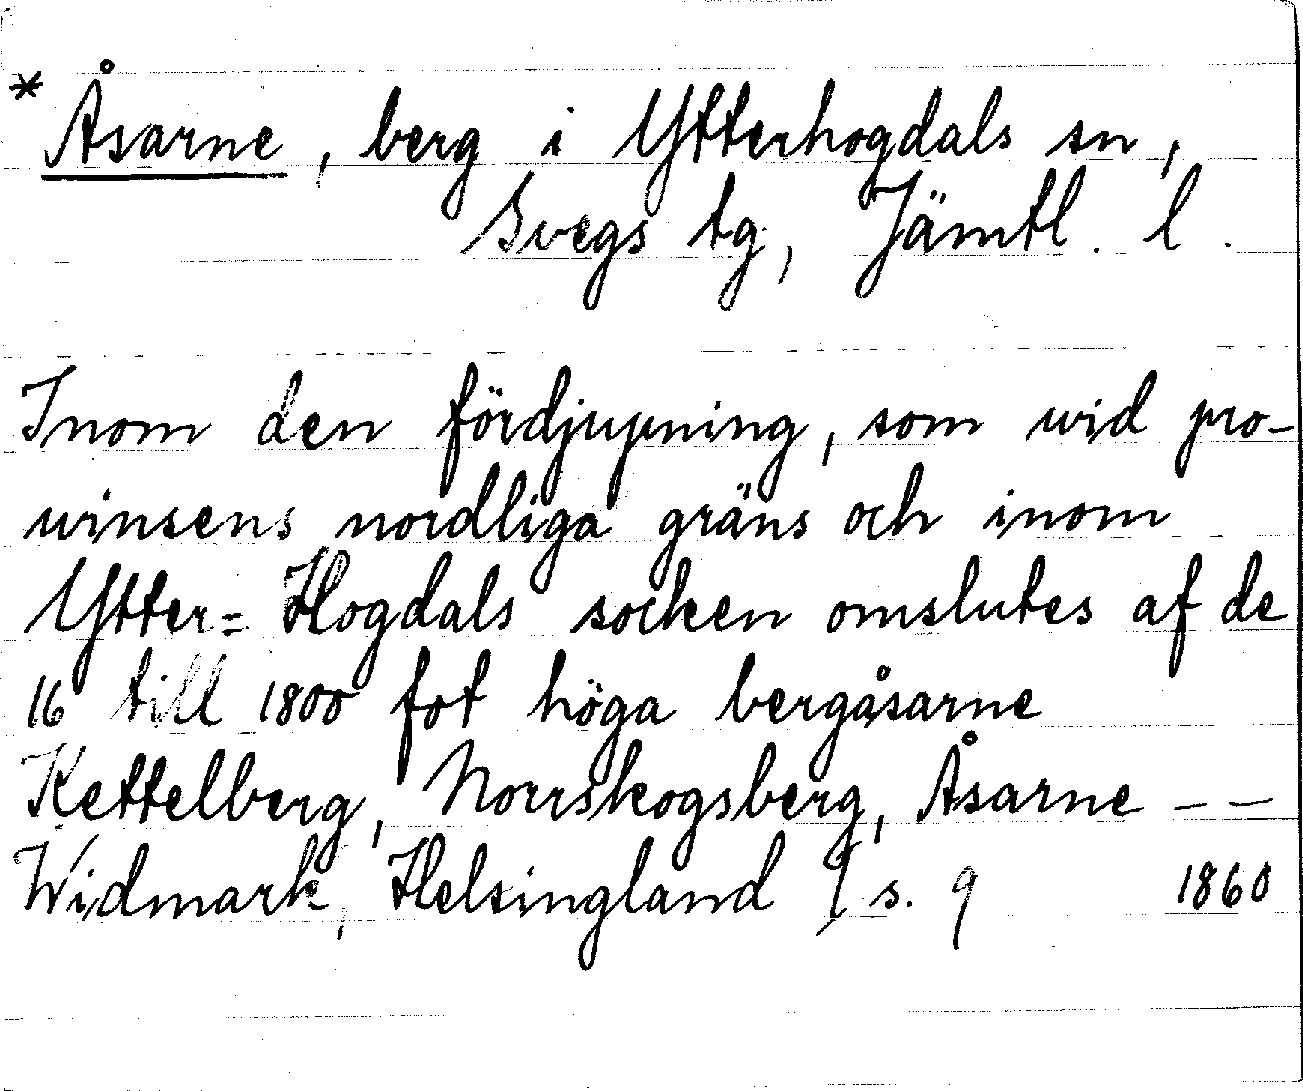 * Åsarne, berg i Ytterhogdals sn,
Svegs tg, Jämtl. l.
Inom den fördjupning, som wid pro-
winsens nordliga gräns och inom
Ytter= Hogdals socken omslutes af de
16 till 1800 fot höga bergåsarne
Kettelberg, Norrskogsberg, Åsarne – –
Widmark, Helsingland I s. 9 1860